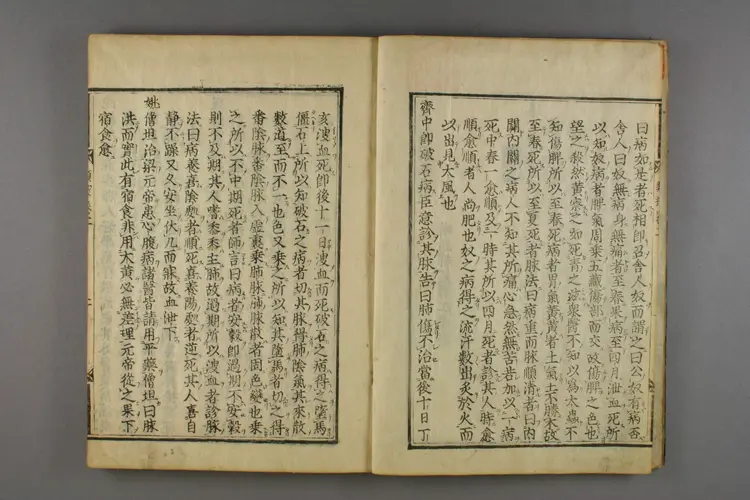 曰病如是者死相卽召舍人奴而謂之曰公奴有病否
舍人曰奴無病身無痛者至春果病至四月泄血死所
以知奴病者脾氣周乘五藏傷部而交故傷脾之色也
望之殺然黃察之如死青之茲衆醫不知以爲大蟲不
知傷脾所以至春死病者胃氣黃黃者土氣土不勝木故
至春死所以至夏死者脉法曰病重而脉順淸者曰內
關內關之病人不知其所痛心急然無苦若加以一病
死中春一愈順及一時其所以四月死者診其人時愈
順愈順者人尚肥也奴之病得之流汗數出炙於火而
以出見大風也
齊中郎破石病臣意診其脉告曰肺傷不治當後十日丁
亥溲血死卽後十一日溲血而死破石之病得之墮馬
僵石上所以知破石之病者切其脉得肺陰氣其來散
數道至而不一也色又乘之所以知其墮馬者切之得
番陰脉番陰脉入虛裏乘肺脉肺脉散者固色變也乘
之所以不中期死者師言曰病者安穀卽過期不安穀
則不及期其人嗜黍黍主肺故過期所以溲血者診脉
法曰病養喜陰處者順死喜養陽處者逆死其人喜自
靜不躁又久安坐伏几而寐故血泄下
姚僧坦治梁元帝患心腹病諸醫皆請用平藥僧坦曰脉
洪而實此有宿食非用大黃必無差理元帝從之果下
宿食愈